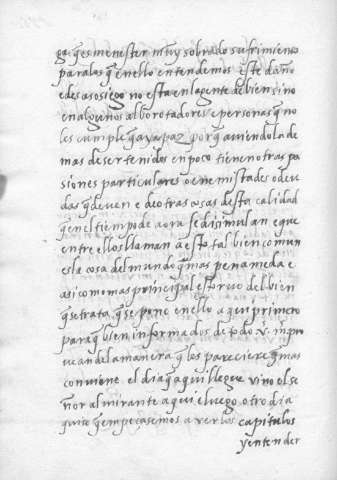 ga q̃ es menester muy sobrado sufrimiento
para las q̃ en ello entendemos este daño
e desasosiego no esta en la gente de bien sino
en algunos alborotadores e personas q̃ no
les cumple q̃ aya paz porq̃ aviendola de
mas de ser tenidos en poco tienen otras pa
siones particulares o enemistades o deu
das q̃ deven e de otras cosas desta calidad
q̃ en el tiempo de aora se disimulan e que
entre ellos llaman a esto tal bien comun
es la cosa del mundo q̃ mas pena me da e
asi como mas principal estorvo del bien
que trata q̃ se pone en ello a qui primero
para q̃ bien informados de todo v. m pro
vean de la manera q̃ les pareciere q̃ mas
conviene. el dia q̃ aqui llegue vino el se
ñor almirante aqui e luego otro dia
q̃ empeçasemos a ver los capitulos
y entender